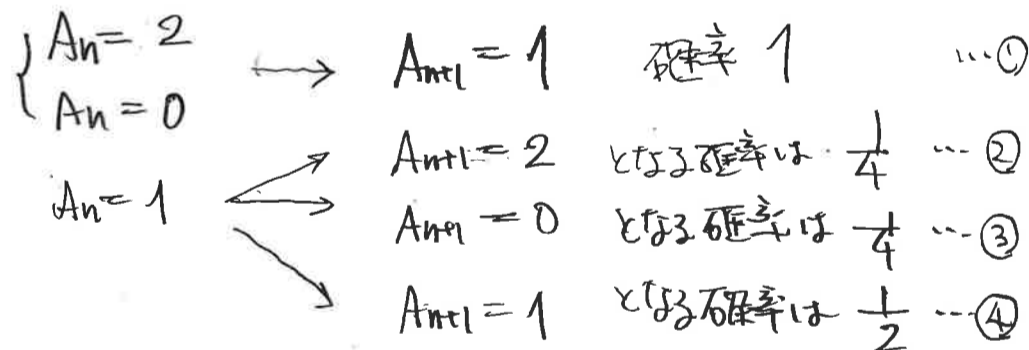 An = 2
An = 0
An+1 = 1 確率 1 …①
An = 1
An+1 = 2 となる確率は 1/4 …②
An+1 = 0 となる確率は 1/4 …③
An+1 = 1 となる確率は 1/2 …④